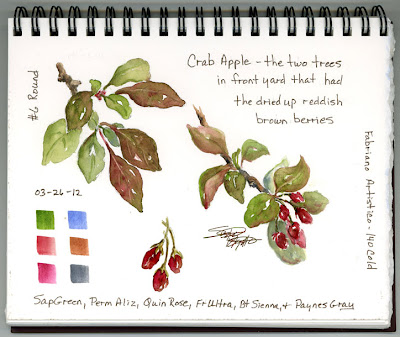 Crab Apple - the two trees
in front yard that had
the dried up reddish
brown berries
#6 Round
Fabriano Artistico - 140 Cold
03-26-12
SapGreen, Perm Aliz, Quin Rose, Fr Ultra, Bt Sienna, + Paynes Gray